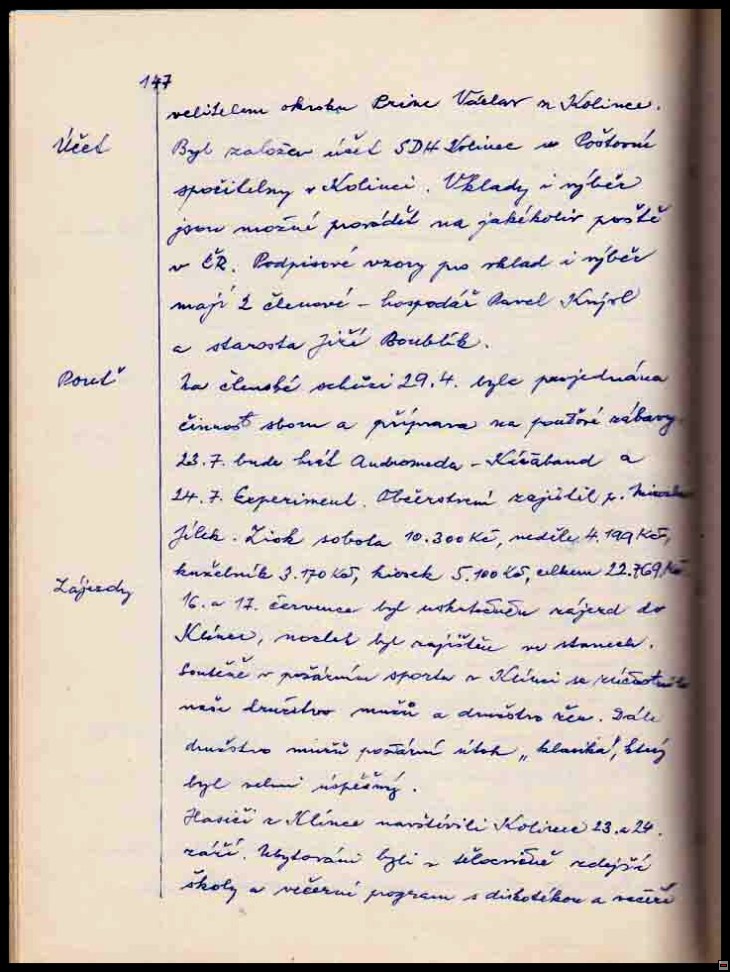 147
velitelem okrsku Princ Václav z Kolince.
Účet
Byl založen účet SDH Kolinec u Poštovní
spořitelny v Kolinci. Vklady i výběr
jsou možné provádět na jakékoliv poště
v ČR. Podpisové vzory pro vklad i výběr
mají 2 členové – hospodář Pavel
a starosta Jiří Boublík.
Pouť
Na členské schůzi 29.4. byla projednána
činnost sboru a příprava na pouťové zábavy.
23.7. bude hrát Andromeda – Kižaband a
24.7. Experiment. Občerstvení zajistil p.
Jílek. Zisk sobota 10.300 Kč, neděle 4.199 Kč,
kuželník 3.170 Kč, kiosek 5.100 Kč, celkem 22.769 Kč.
Zájezdy
16. a 17. července byl uskutečněn zájezd do
Klínce, nocleh byl zajištěn ve stanech.
Soutěže v požárním sportu v Klínci se zúčastnilo
naše družstvo mužů a družstvo žen. Dále
družstvo mužů požární útok „klasika", který
byl velmi úspěšný.
Hasiči z Klínce navštívili Kolinec 23. a 24.
září. Ubytováni byli v tělocvičně zdejší
školy a večerní program s diskotékou a večeří